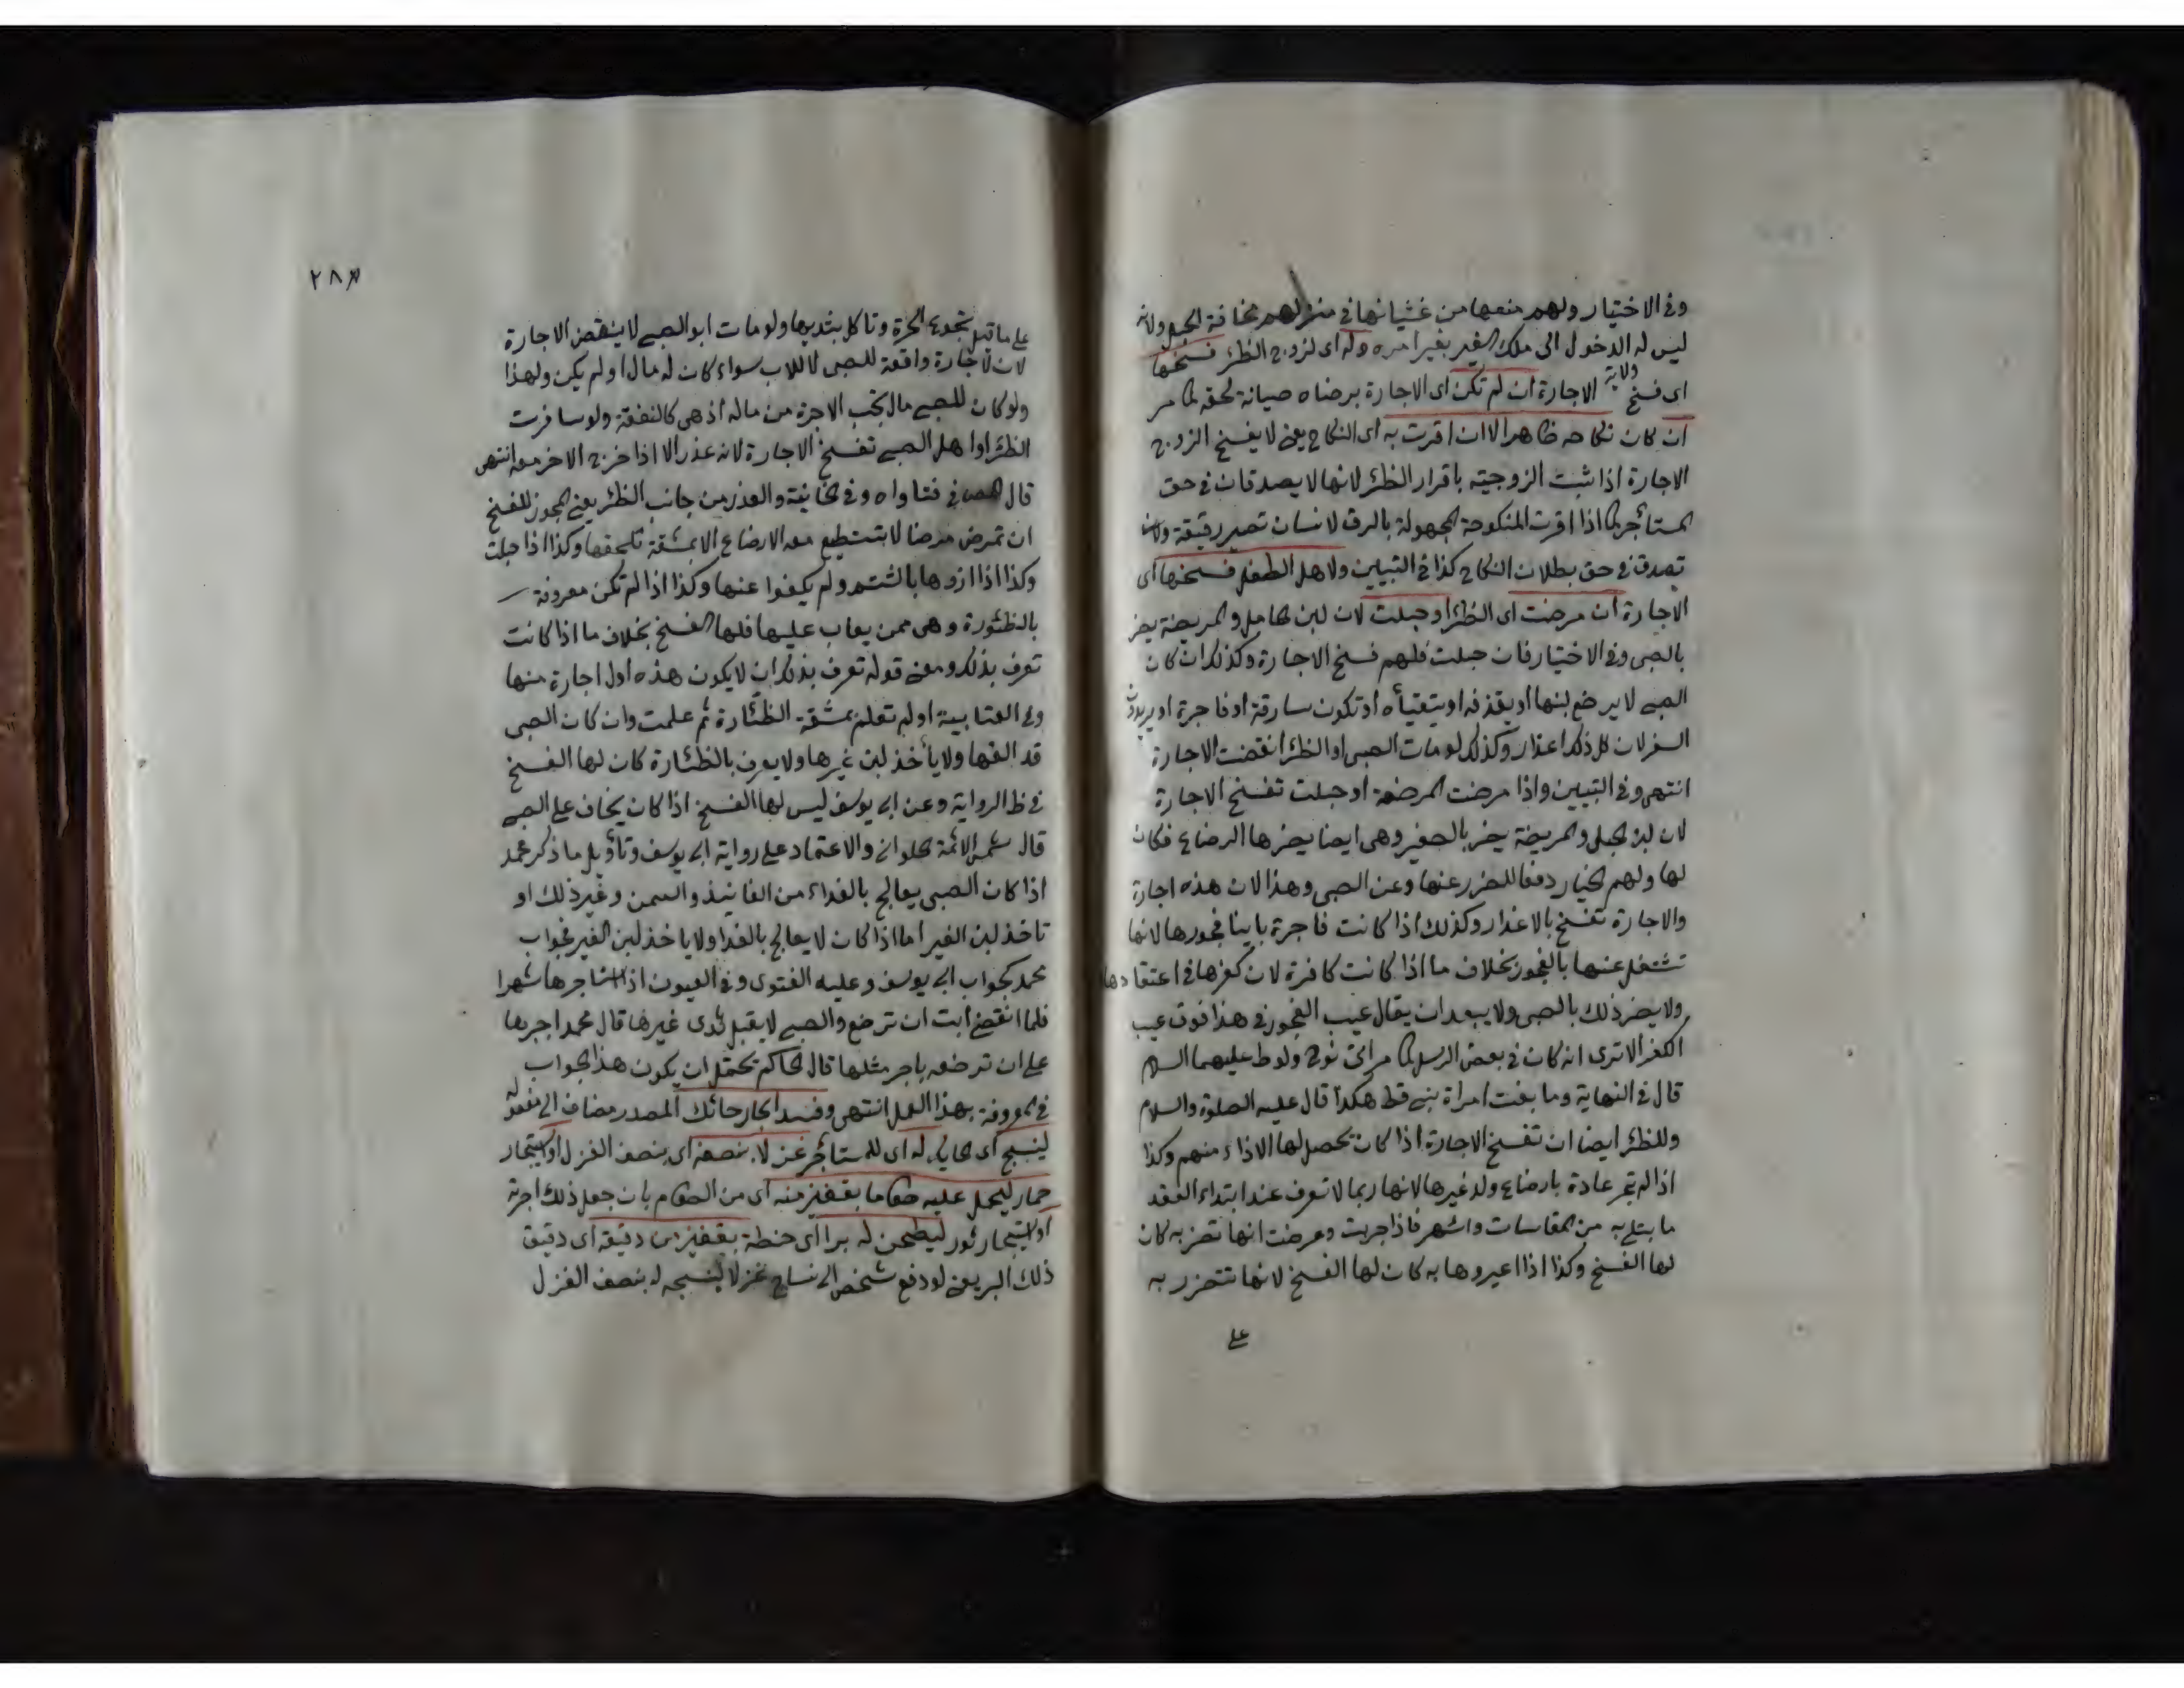 وفي الاختيار ولهم منعها من غشيانها في منزلهم مخافة الحبل ولانه
ليس له الدخول الى ملك الغير بغير امره وله اى لزوج الظئر فسخها
اى فسخ ولاية الاجارة ان لم تكن اى الاجارة برضاه صيانة لحقه كما مر
ان كان نكاحه ظاهرا لا ان اقرت به اى النكاح يعني لا يفسخ الزوج
الاجارة اذا ثبت الزوجية باقرار الظئر لانها لا يصدقان في حق
المستأجر كما اذا اقرت المنكوحة المجهولة بالرق لانسان تصير رقيقة ولا
تصدق في حق بطلان النكاح كذا في التبيين ولاهل الطفل فسخها اى
الاجارة ان مرضت اى الظئر او حبلت لان لبن الحامل والمريضة يضر
بالصبى وفي الاختيار فان حبلت فلهم فسخ الاجارة وكذلك ان كان
الصبي لا يرضع لبنها او يقذفه او يتقيأه او تكون سارقة او فاجرة او يريدون
السفر لان كل ذلك اعذار وكذلك لو مات الصبى او الظئر انقضت الاجارة
انتهى وفي التبيين واذا مرضت المرضعة او حبلت تفسخ الاجارة
لان لبن الحبلى والمريضة يضر بالصغير وهى ايضا يضرها الرضاع فكان
لها ولهم الخيار دفعا للضرر عنها وعن الصبى وهذا لان هذه اجارة
والاجارة تفسخ بالاعذار وكذلك اذا كانت فاجرة باينا فجورها لانها
تشتغل عنها بالفجور بخلاف ما اذا كانت كافرة لان كفرها في اعتقادها
ولا يضر ذلك بالصبى ولا يبعد ان يقال عيب الفجور في هذا فوق عيب
الكفر الا ترى انه كان في بعض الرسل كما مرأتي نوح ولوط عليهما السلام
قال في النهاية وما بغت امراة نبي قط هكذا قال عليه الصلوة والسلام
وللظئر ايضا ان تفسخ الاجارة اذا كان يحصل لها الاذاء منهم وكذا
اذا لم تجر عادة بارضاع ولد غيرها لانها ربما لا تعرف عند ابتداء العقد
ما يبتلى به من المقاسات والشهر فاذا جربت وعرفت انها تضر به كان
لها الفسخ وكذا اذا اعيروها به كان لها الفسخ لانها تتضرر به
على
٢٨٣
على ما قيل تجوع الحرة ولا تاكل بثديها ولو مات ابو الصبي لا ينقض الاجارة
لان الاجارة واقعة للصبى لا للاب سواء كان له مال او لم يكن ولهذا
ولو كان للصبي مال تجب الاجرة من ماله اذ هى كالنفقة ولو سافرت
الظئر او اهل الصبي تفسخ الاجارة لانه عذر الا اذا خرج الاخر معه انتهى
قال المص في فتاواه وفي الخانية والعذر من جانب الظئر يعني المجوز للفسخ
ان تمرض مرضا لا تستطيع معه الارضاع الا بمشقة تلحقها وكذا اذا حبلت
وكذا اذا اذوها بالشتم ولم يكفوا عنها وكذا اذا لم تكن معروفة
بالظئورة وهى ممن يعاب عليها فلها الفسخ بخلاف ما اذا كانت
تعرف بذلك ومعنى قوله تعرف بذلك ان لا يكون هذه اول اجارة منها
وفي العتابية او لم تعلم بمشقة الظئارة ثم علمت وان كان الصبى
قد الفها ولا يأخذ لبن غيرها ولا يعرف بالظئارة كان لها الفسخ
في ظ الرواية وعن ابي يوسف ليس لها الفسخ اذا كان يخاف على الصبي
قال شمس الائمة الحلواني والاعتماد على رواية ابي يوسف وتأويل ما ذكر محمد
اذا كان الصبى يعالج بالغداء من الفانيذ والسمن وغير ذلك او
تاخذ لبن الغير اما اذا كان لا يعالج بالغذا ولا ياخذ لبن الغير فجواب
محمد كجواب ابي يوسف وعليه الفتوى وفي العيون اذا استاجرها شهرا
فلما انقضى ابت ان ترضع والصبي لا يقبل ثدى غيرها قال محمد اجبرها
على ان ترضعه باجر مثلها قال الحاكم تحتمل ان يكون هذا الجواب
في المعروفة بهذا العمل انتهى وفسد ايجار حائك المصدر مضاف الى مفعوله
لينسج اى الحايك له اى للمستأجر غزلا بنصفه اى بنصف الغزل او استيجار
حمار ليحمل عليه طعاما بقفيز منه اى من الطعام بان جعل ذلك اجرة
او استيجار ثور ليطحن له برا اى حنطة بقفيز من دقيقه اى دقيق
ذلك البر يعني لو دفع شخص الى نساج غزلا لينسجه له بنصف الغزل